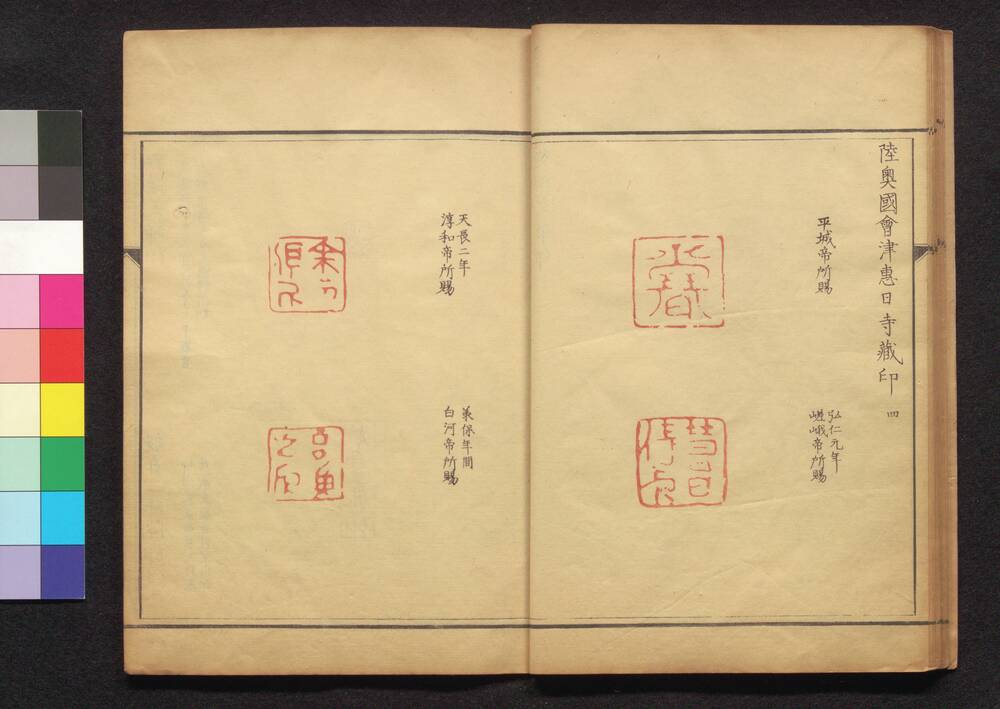 陸奥國會津惠日寺藏印 四
平城帝所賜
弘仁元年
嵯峨帝所賜
天長二年
淳和帝所賜
承保年間
白河帝所賜